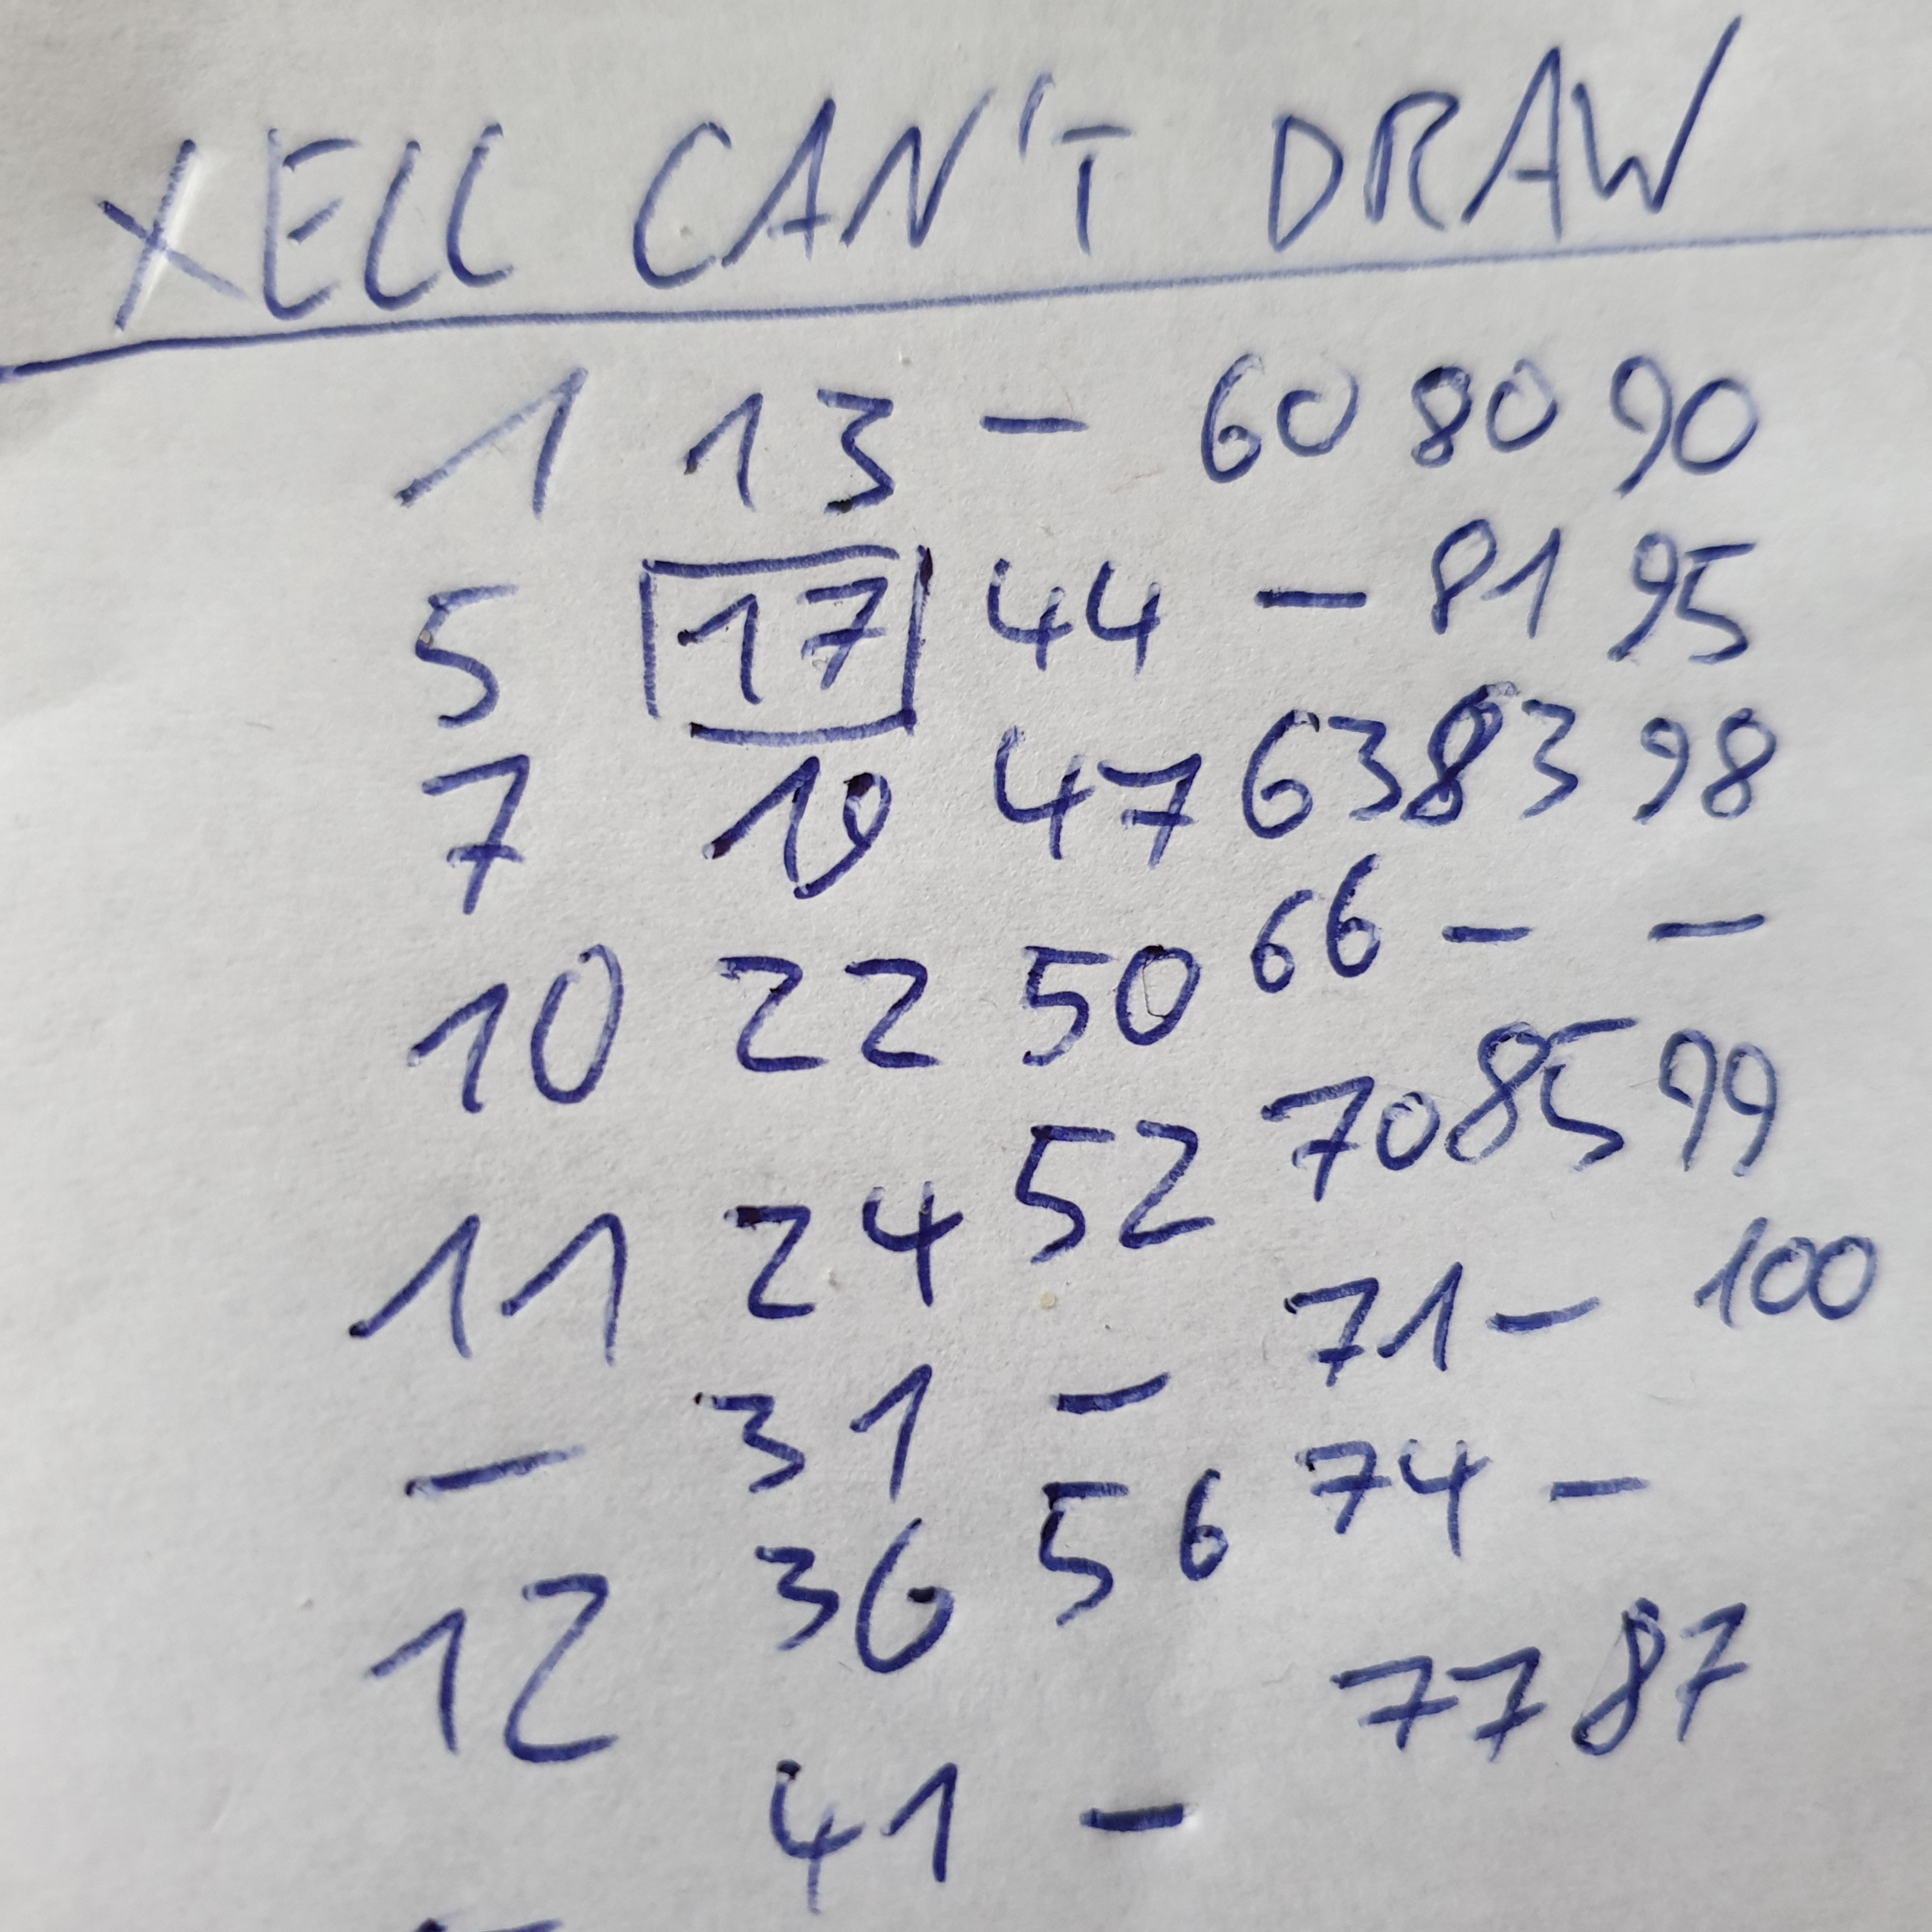 XELL CAN'T DRAW
1 13 - 60 80 90
5 17 44 - 81 95
7 19 47 63 83 98
10 22 50 66 - -
11 24 52 70 85 99
- 31 - 71 - 100
12 36 56 74 -
41 - 77 87